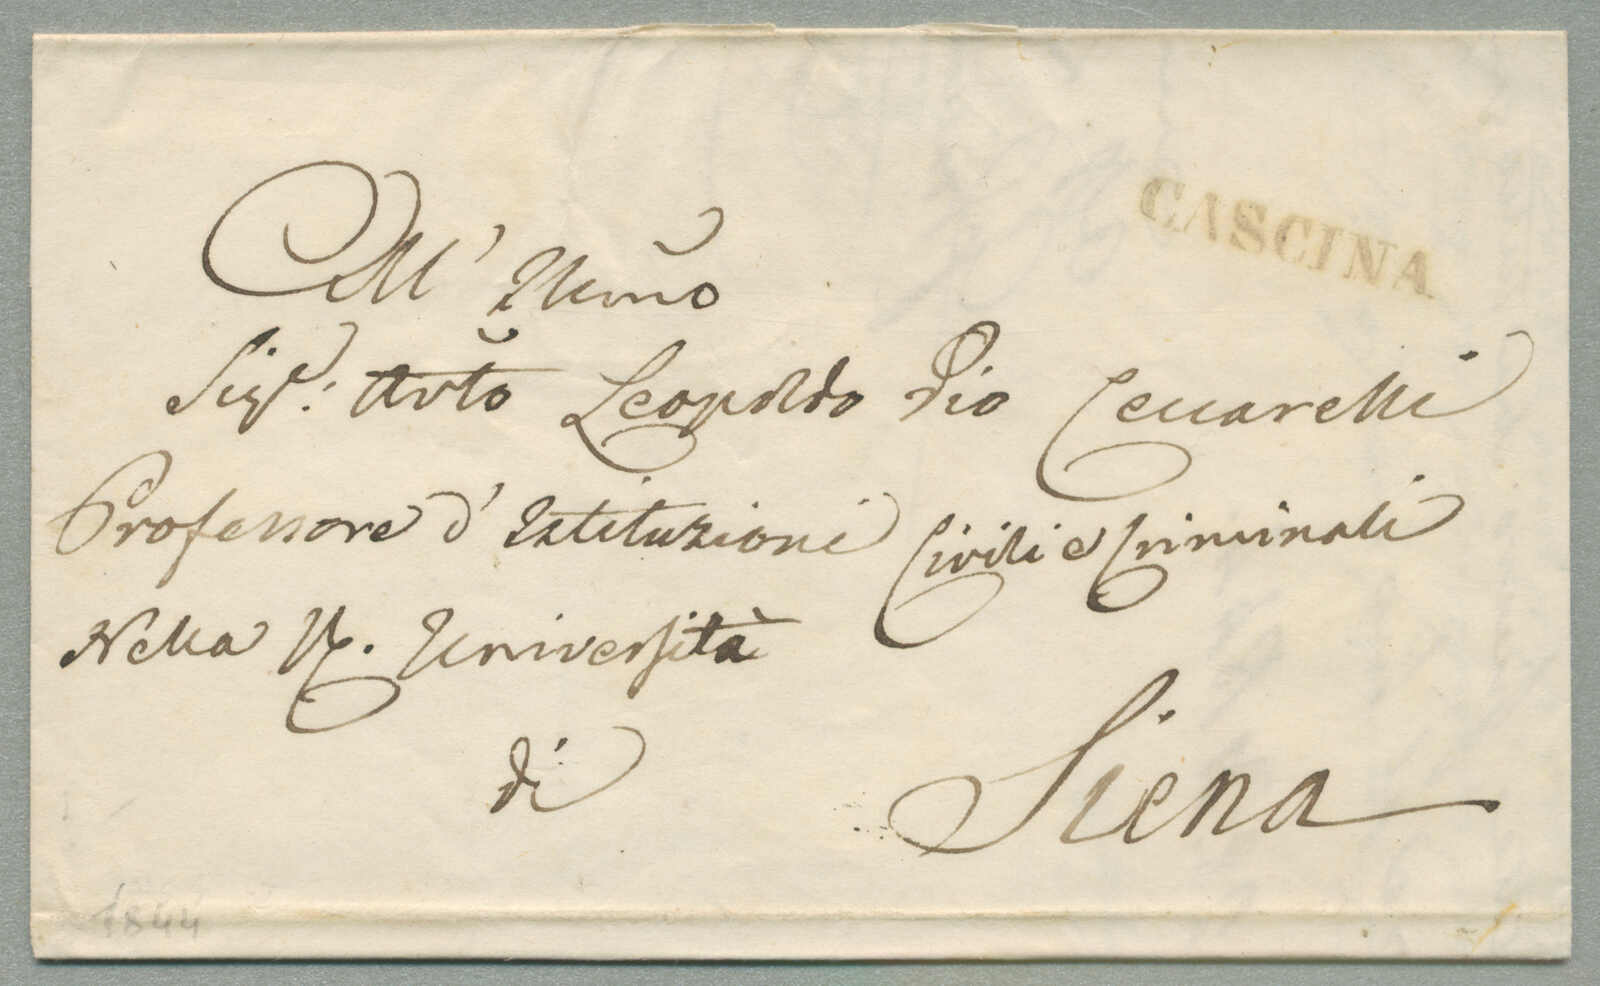 CASCINA
All' Illmõ
Sigre: Avtõ Leopoldo Pio Ceccarelli
Professore d' Istituzioni Civili e Criminali
Nella R. Università
di Siena
1844